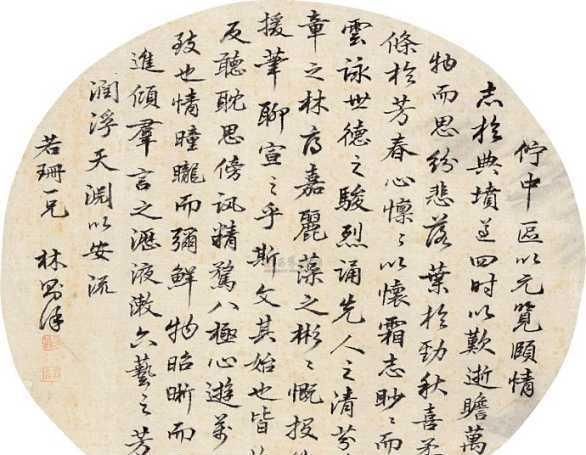 佇中區以元覽頤情
志於典墳遵四時以歎逝瞻萬
物而思紛悲落葉於勁秋喜柔
條於芳春心懍〻以懷霜志眇〻而
雲詠世德之駿烈誦先人之清芬
章之林府嘉麗藻之彬〻慨投
援筆聊宣之乎斯文其始也皆
反聽耽思傍訊精騖八極心遊萬
致也情曈曨而彌鮮物昭晰而
進傾羣言之瀝液漱六藝之芳
潤浮天淵以安流
若珊一兄 林則徐